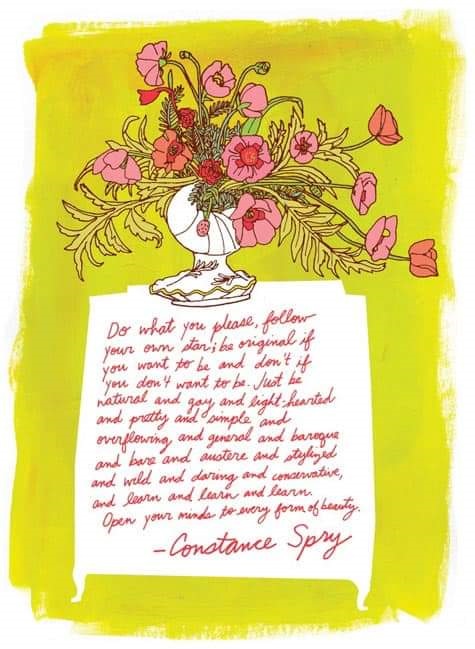 Do what you please, follow
your own star; be original if
you want to be and don't if
you don't want to be. Just be
natural and gay and light-hearted
and pretty and simple and
overflowing and general and baroque
and bare and austere and stylized
and wild and daring and conservative,
and learn and learn and learn.
Open your minds to every form of beauty.
-Constance Spry